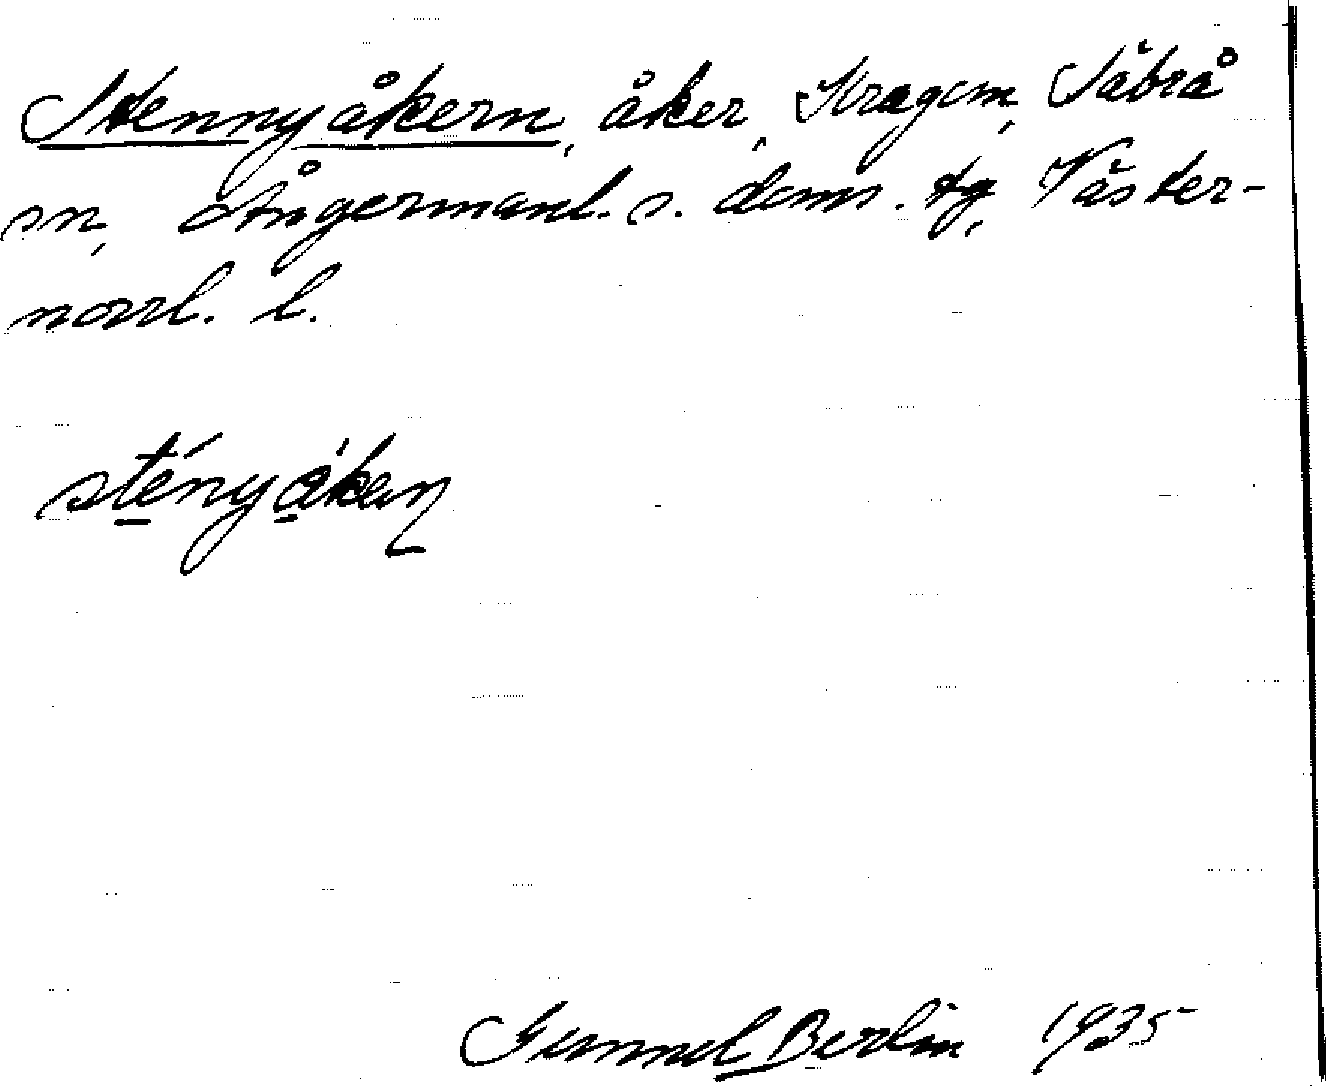 Stennyåkern, åker, Kragom, Säbrå
sn, Ångermanl. s. doms. tg, Väster-
norrl. l.
stényåken
Gunnel Berlin 1935